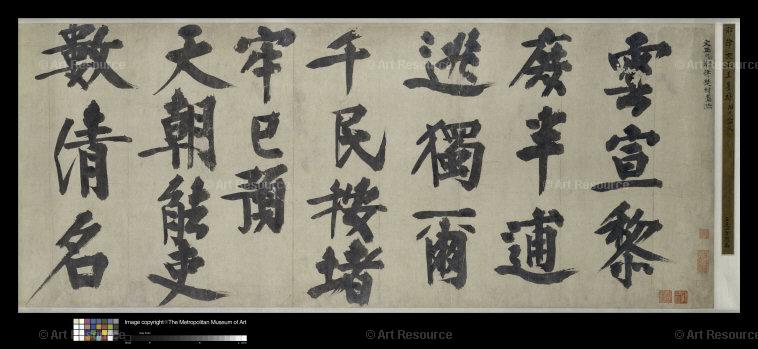 雲宣黎
庶半逋
逃獨爾
千民按堵
牢已預
天朝能吏
數清名
Image copyright © The Metropolitan Museum of Art
© Art Resource
© Art Resource
© Art Resource
© Art Resource
© Art Resource
© Art Resource
© Art Resource
© Art Resource
© Art Resource